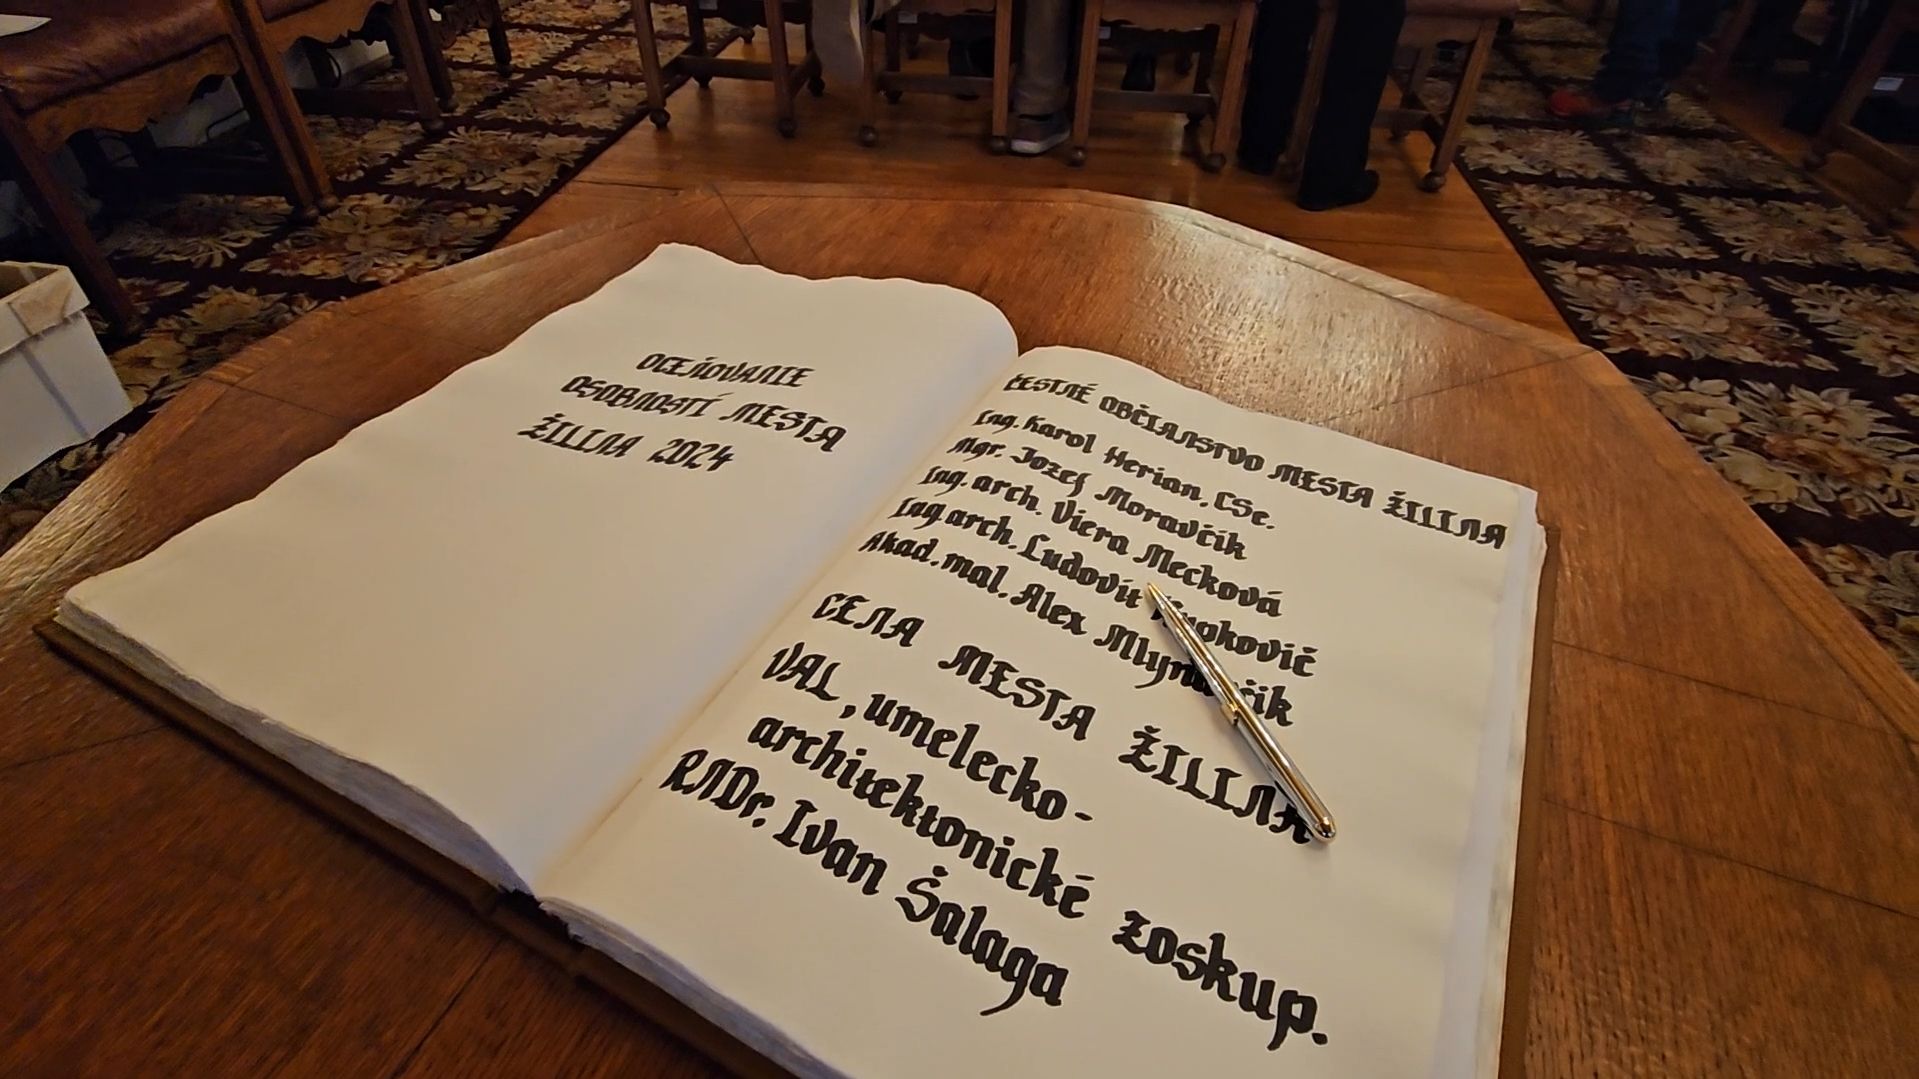 OCEŇOVANIE
OSOBNOSTÍ MESTA
ŽILINA 2024
ČESTNÉ OBČIANSTVO MESTA ŽILINA
Ing. Karol Herian, CSc.
Mgr. Jozef Moravčík
Ing. arch. Viera Mecková
Ing.arch. Ľudovít
Akad. mal. Alex Mlynárčik
CENA MESTA ŽILINA
VAL, umelecko-
architektonické zoskup.
RNDr. Ivan Šalaga